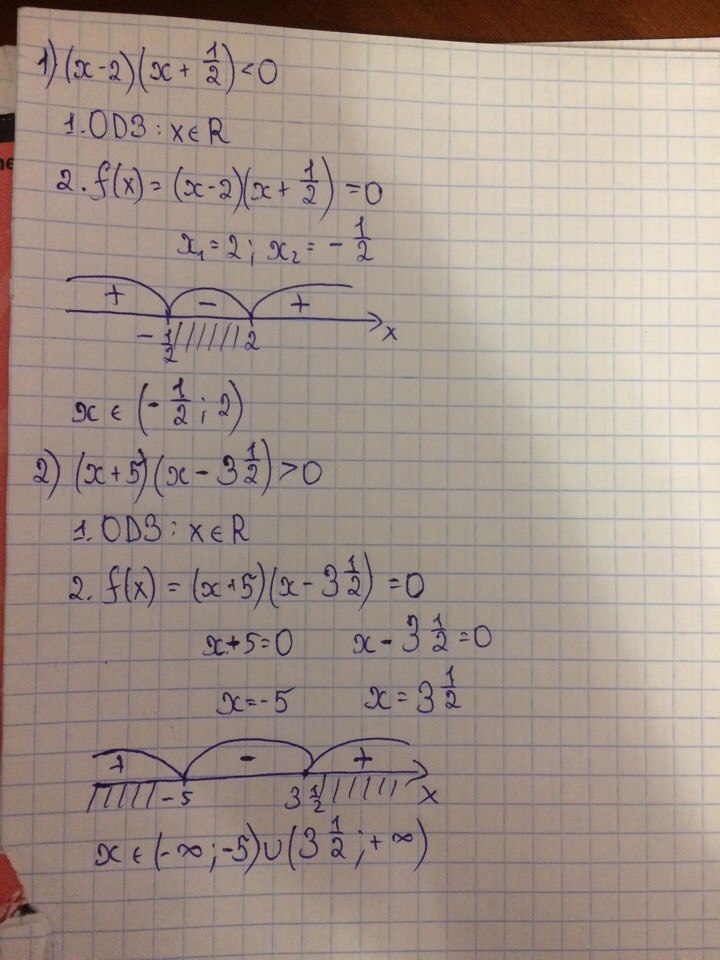 1) (x-2)(x + 1/2) < 0
1. ОДЗ : x ∈ R
2. f(x) = (x-2)(x + 1/2) = 0
x₁ = 2 ; x₂ = - 1/2
+ - +
- 1/2 2 x
x ∈ (- 1/2 ; 2)
2) (x+5)(x - 3 1/2) > 0
1. ОДЗ : x ∈ R
2. f(x) = (x+5)(x - 3 1/2) = 0
x+5=0 x - 3 1/2 = 0
x=-5 x = 3 1/2
+ - +
-5 3 1/2 x
x ∈ (-∞ ; -5) ∪ (3 1/2 ; +∞)